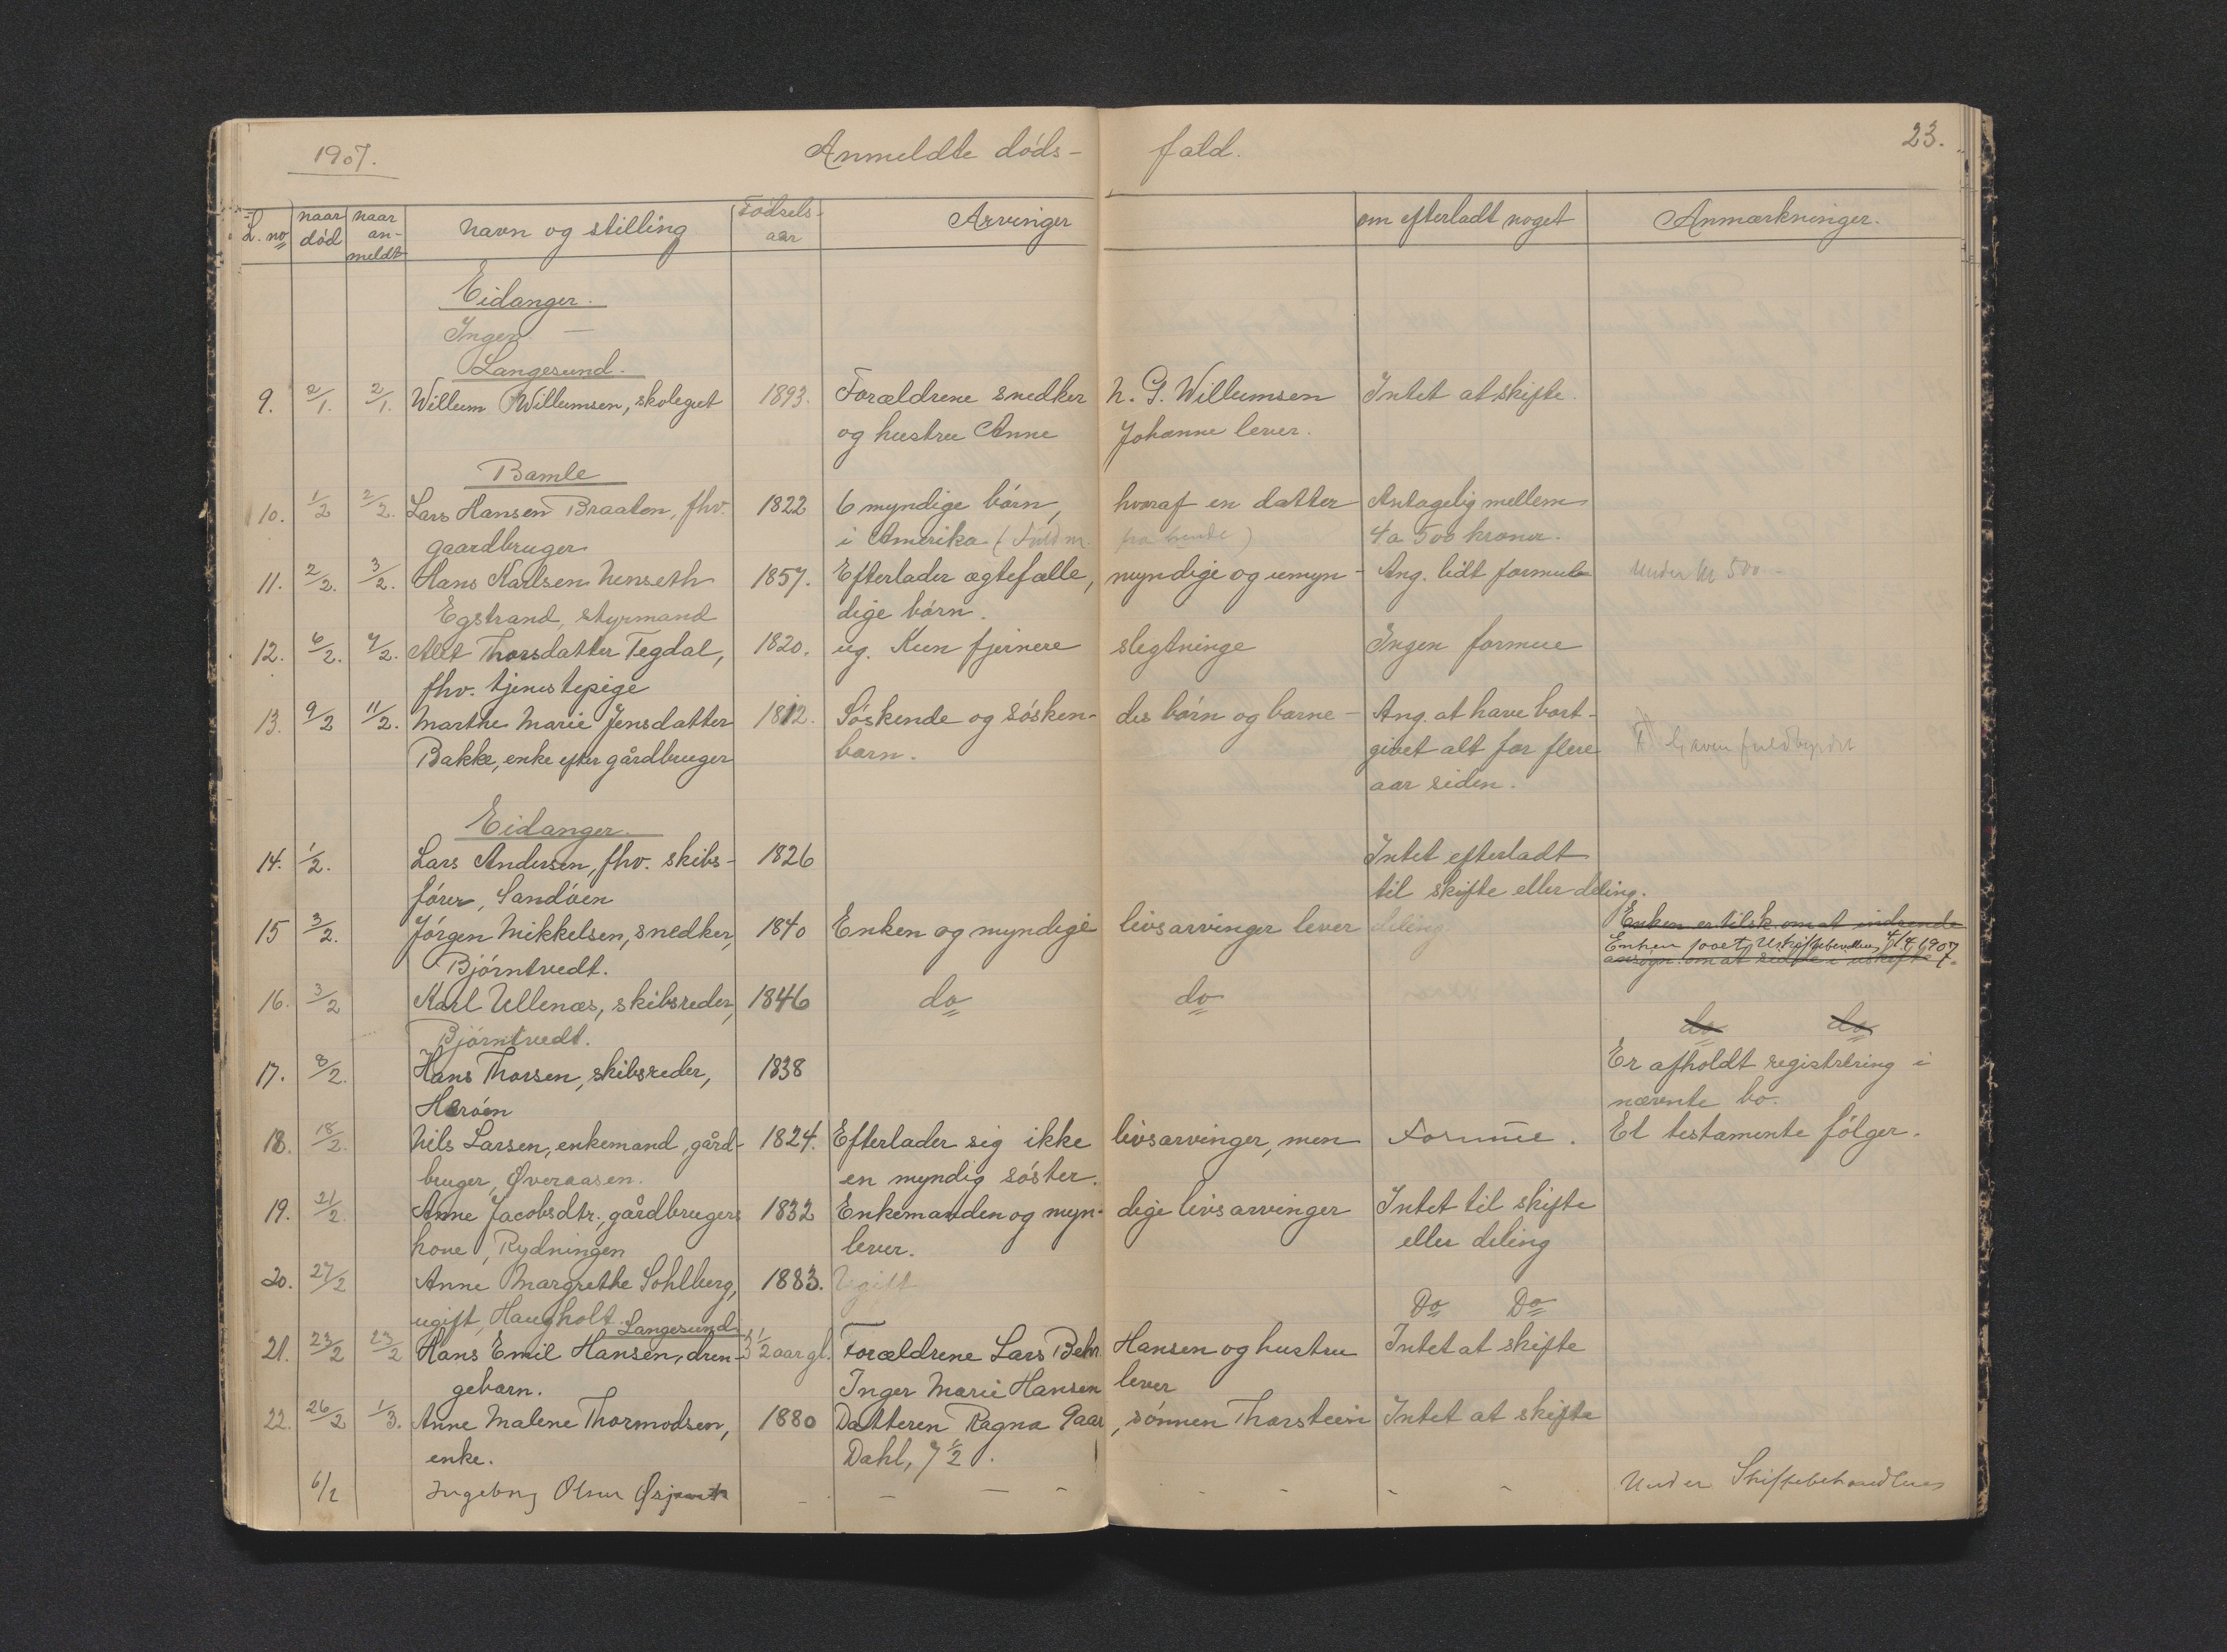 1907. Anmeldte døds- fald. 23.
L. no naar død naar an-meldt Navn og stilling Fødsels-aar Arvinger om efterladt noget Anmærkninger.
Eidanger.
Ingen —
Langesund.
9. 2/1. 2/1. Willum Willumsen, skolegut 1893. Forældrene snedker N. G. Willumsen Intet at skifte.
og hustru Anne Johanne lever.
Bamle
10. 1/2 2/2. Lars Hansen Braaten, fhv. 1822 6 myndige børn, hvoraf en datter Antagelig mellem
gaardbruger i Amerika ( fra hende) 4 a 500 kroner.
11. 2/2. 3/2. Hans Karlsen Nenseth 1857. Efterlader ægtefælle, myndige og umyn- Ang. lidt formue Under kr 500 -
Egstrand, styrmand dige børn.
12. 6/2. 7/2. Alet Thorsdatter Tegdal, 1820. ug. Kun fjernere slegtninge Ingen formue
fhv. tjenestepige
13. 9/2 11/2. Marthe Marie Jensdatter 1812. Søskende og søsken- des børn og barne- Ang. at have bort-
Bakke, enke efter gårdbruger barn. givet alt for flere fuldbyrdet
aar siden.
Eidanger.
14. 1/2. Lars Andersen, fhv. skibs- 1826 Intet efterladt
fører, Sandøen til skifte eller deling.
15 3/2. Jørgen Mikkelsen, snedker, 1840 Enken og myndige livsarvinger lever deling. Enken er tilsk. om at indsende
Enken Uskiftebevilling 4/4 1907
Bjørntvedt. ansøgn. om at sidde i uskifte
16. 3/2 Karl Ullenæs, skibsreder, 1846 do do
Bjørntvedt. do do
17. 8/2. Hans Thorsen, skibsreder, 1838 Er afholdt registrering i
Herøen nævnte bo.
18. 18/2. Nils Larsen, enkemand, gård- 1824. Efterlader sig ikke livsarvinger, men Formue. Et testamente følger.
bruger, Øveraasen. en myndig søster.
19. 21/2. Anne Jacobsdtr., gårdbrugers 1832 Enkemanden og myn- dige livsarvinger Intet til skifte
kone, Rydningen lever. eller deling
20. 27/2 Anne Margrethe Sohlberg, 1883. Ugift
ugift, Haugholt Do Do
Langesund
21. 23/2 23/2 Hans Emil Hansen, dren- 3 1/2 aar gl. Forældrene Lars Behr. Hansen og hustru Intet at skifte
gebarn. Inger Marie Hansen lever
22. 26/2 1/3. Anne Malene Thormodsen, 1880 Datteren Ragna 9 aar, sønnen Thorstein Intet at skifte
enke. Dahl, 7 1/2.
6/2 Ingeborg Olsen - - - - - - - - - Under Skiftebehandling